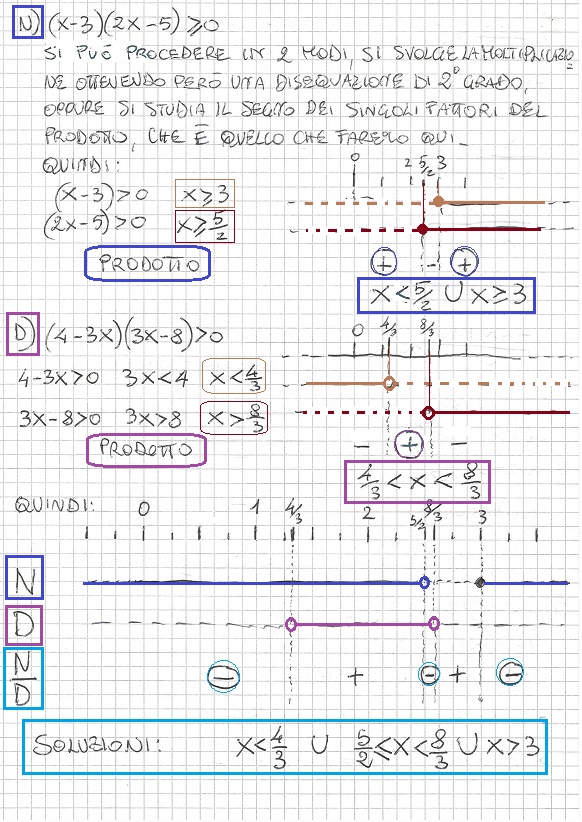 N) (x-3)(2x-5) ⩾0
SI PUÒ PROCEDERE IN 2 MODI, SI SVOLGE LA MOLTIPLICAZIO
NE OTTENENDO PERÒ UNA DISEQUAZIONE DI 2° GRADO,
OPPURE SI STUDIA IL SEGNO DEI SINGOLI FATTORI DEL
PRODOTTO, CHE È QUELLO CHE FAREMO QUI_
QUINDI:
0 2 5/2 3
(x-3)>0 x⩾3
(2x-5)>0 x⩾5/2
PRODOTTO
+ - +
x<5/2 U x≥3
D) (4-3x)(3x-8)>0
0 4/3 8/3
4-3x>0 3x<4 x<4/3
3x-8>0 3x>8 x>8/3
PRODOTTO
- + -
4/3 < x < 8/3
QUINDI: 0 1 4/3 2 5/2 8/3 3
N
D
N/D - + - + -
SOLUZIONI: x<4/3 U 5/2≤x<8/3 U x>3